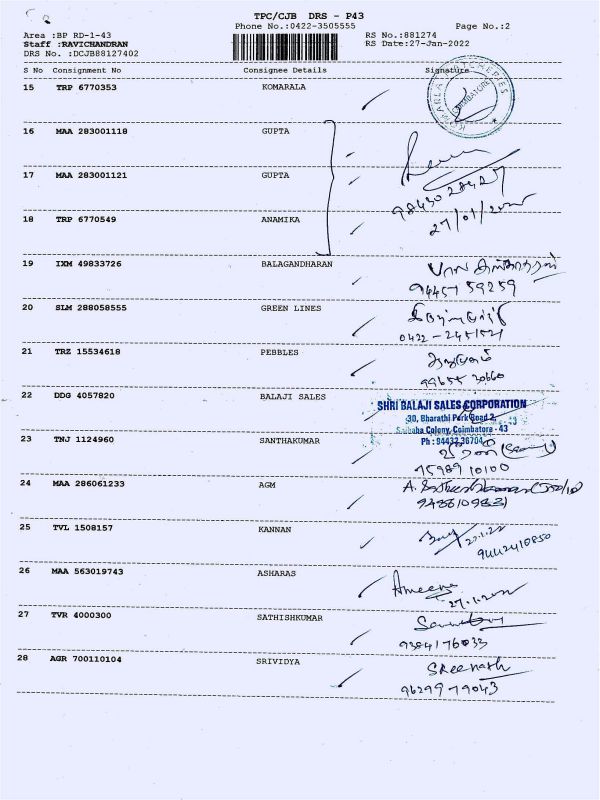 TPC/CJB DRS - P43
Phone No.:0422-3505555 Page No.:2
Area :BP RD-1-43 RS No.:881274
Staff :RAVICHANDRAN RS Date:27-Jan-2022
DRS No. :DCJB88127402
S No Consignment No Consignee Details Signature
15 TRP 6770353 KOMARALA
COIMBATORE
16 MAA 283001118 GUPTA
17 MAA 283001121 GUPTA
27/01/2022
18 TRP 6770549 ANAMIKA
19 IXM 49833726 BALAGANDHARAN
94457 59259
20 SLM 288058555 GREEN LINES
21 TRZ 15534618 PEBBLES
22 DDG 4057820 BALAJI SALES
SHRI BALAJI SALES CORPORATION
30, Bharathi Park Road 2,
Saibaba Colony, Coimbatore - 43
Ph : 94432 36704
23 TNJ 1124960 SANTHAKUMAR
75989 10100
24 MAA 286061233 AGM
25 TVL 1508157 KANNAN
27.1.22
9442410850
26 MAA 563019743 ASHARAS
Ameena
27.1.2022
27 TVR 4000300 SATHISHKUMAR
9384176033
28 AGR 700110104 SRIVIDYA
Sreenath
96299 79043